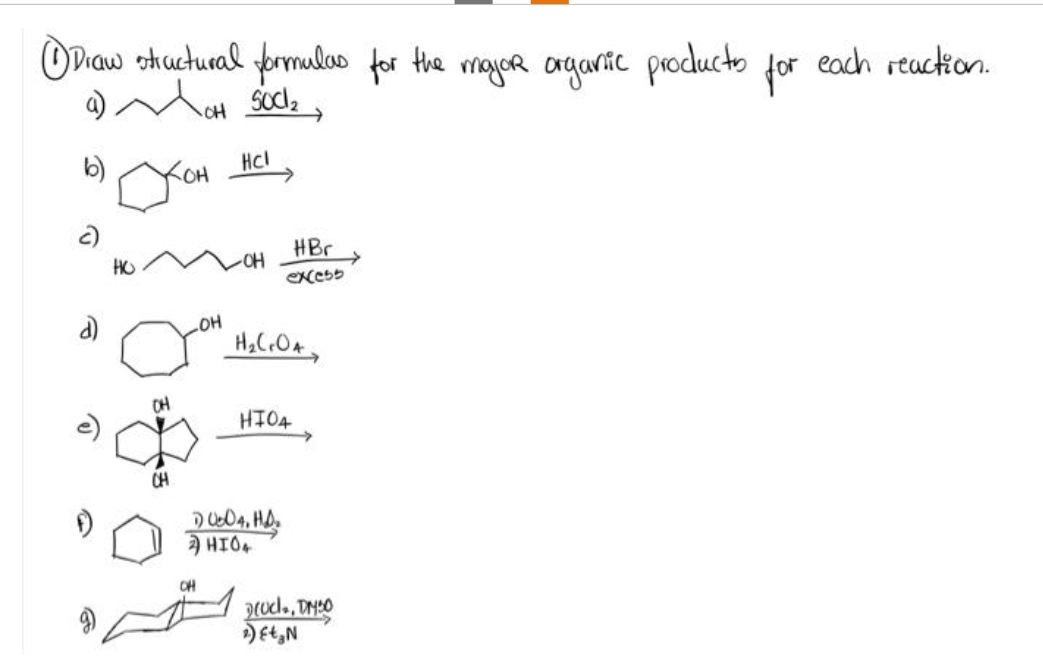 ① Draw structural formulas for the majoR organic products for each reaction.
a) OH SOCl2
b) OH HCl
c) HO OH HBr excess
d) OH H2CrO4
e) OH OH HIO4
f) 1) OsO4, H2O2 2) HIO4
g) OH 1) (COCl)2, DMSO 2) Et3N